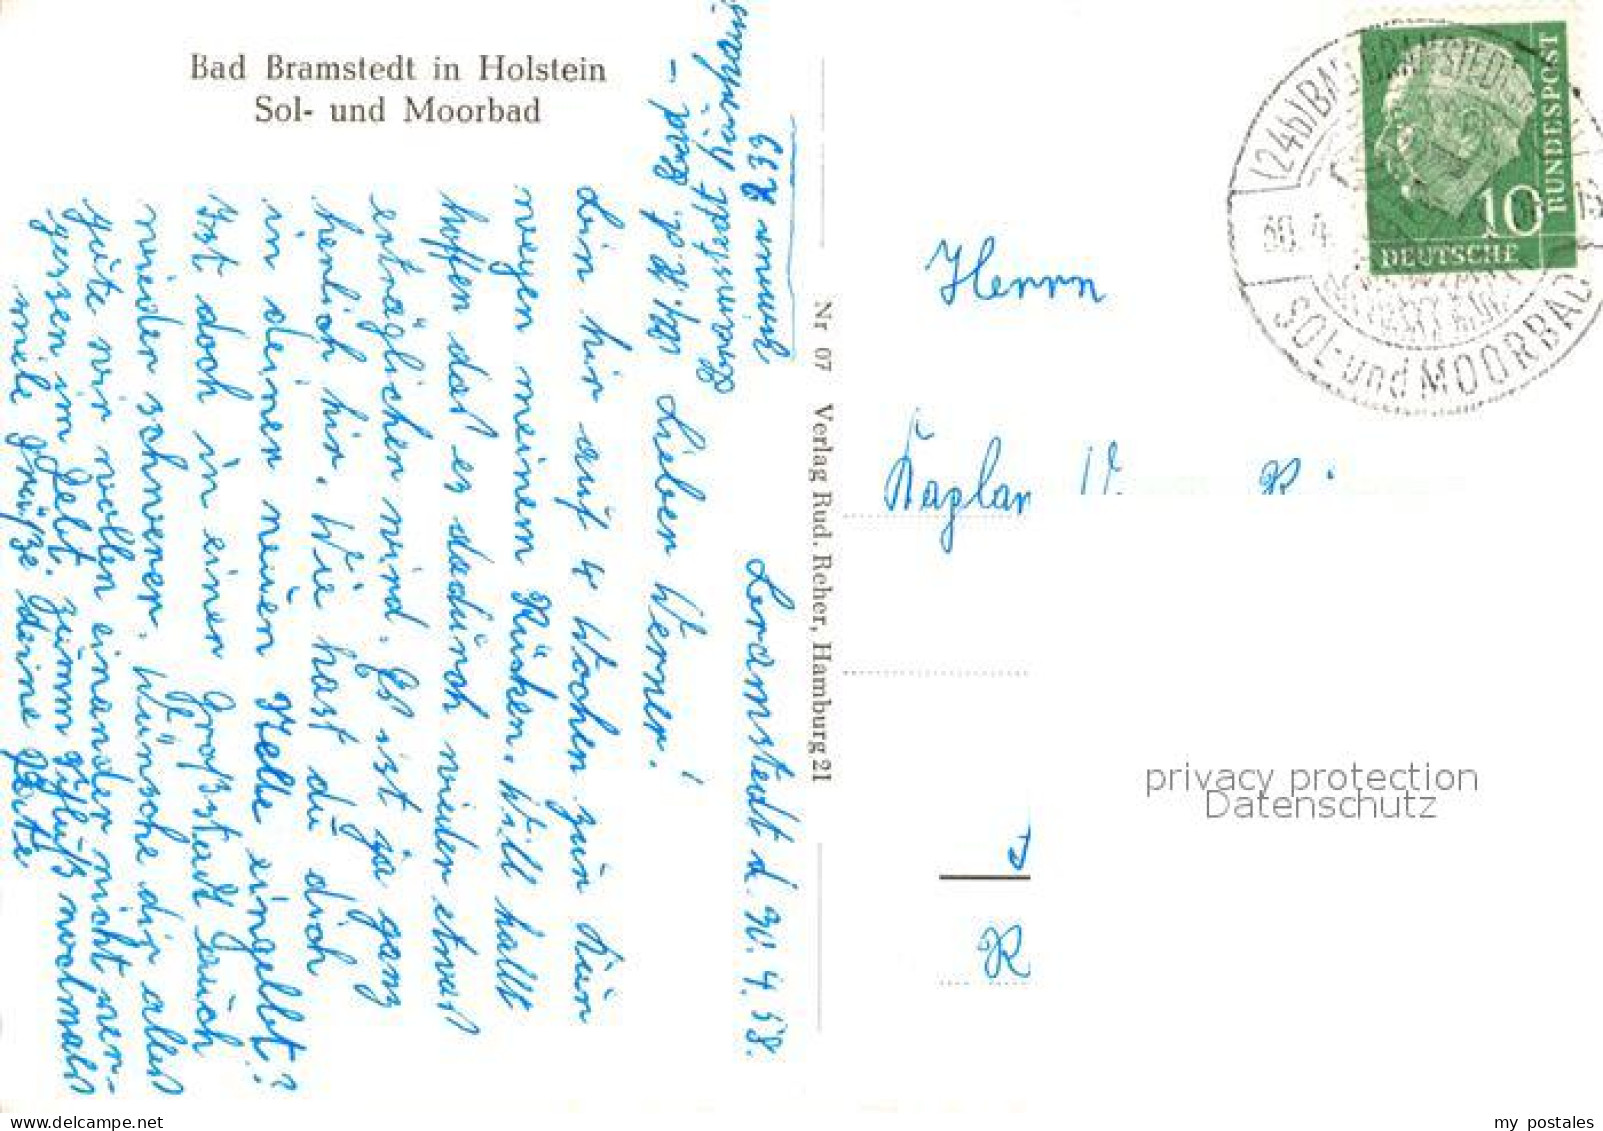 Bad Bramstedt in Holstein
Sol- und Moorbad
Bramstedt d. 30.4.58.
Lieber Werner!
bin hir auf 4 Wochen zur Kur
wegen meinem Rücken. Will hallt
hoffen das es dadurch wieder etwas
erträglicher wird. Es ist ja ganz
herlich hir. Wie hast du dich
in deiner neuen Stelle eingelebt?
Ist doch in einer Großstadt auch
wieder schwerer. Wünsche dir alles
gute wir wollen einander nicht ver-
gessen im Gebt. zumm Schluß nochmals
viele Grüße deine
Bad-
Bramstedt Kurhaus
Zimmer 233
Nr 07 Verlag Rud. Reher, Hamburg 21
(24b) BAD BRAMSTEDT
30. 4.
SOL- und MOORBAD
10
DEUTSCHE
BUNDESPOST
Herrn
Kaplan
privacy protection
Datenschutz
delcampe.net
my postales